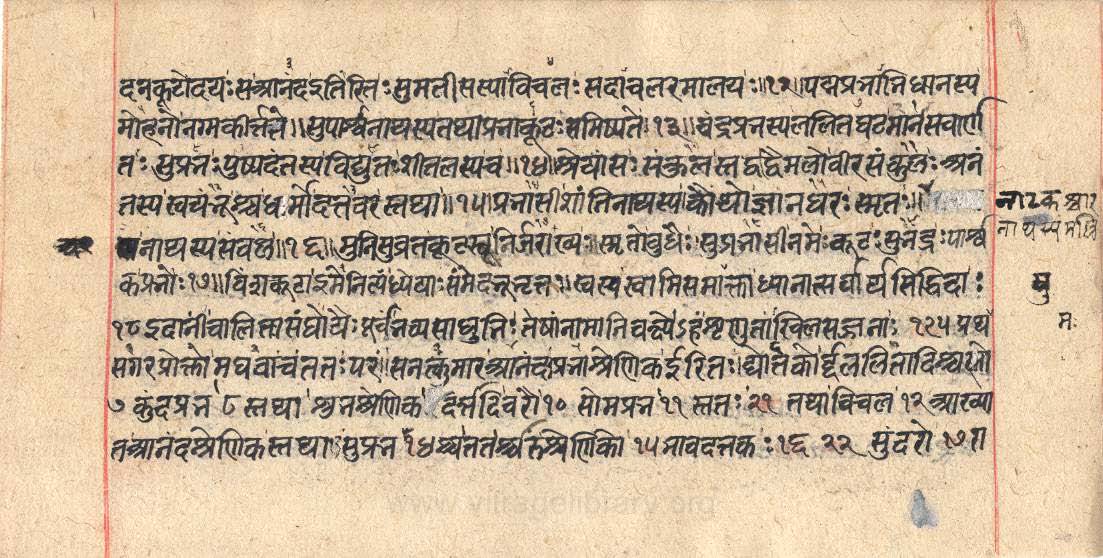 दनकूटोदयः सआनंदइतिस्तिः सुमतीसस्याविचलः सदाचलरमालयः ॥१२॥ पद्मप्रभाभिधानस्य
मोहनोनामकीर्त्तने ॥ सुपार्श्वनाथस्यतथाप्रभाकूटः समिष्यते १३॥ चंद्रप्रभस्यललितघटमानसवर्णि
तः सुप्रभः पुष्पदंतस्यविद्युतशीतलस्यच ॥१४॥ श्रेयांसः संकूलस्तद्वद्वैमलोवीरसंकुलः अनं
तस्यस्वयंभूश्चधर्मोदत्तवरस्तथा ॥१५॥ प्रभासीशांतिनाथस्यकौंथोज्ञानधरः स्मृतः ॥
नाटकश्चार
नाथस्यमल्लि
नाथस्यसंबलः ॥१६॥ मुनिसुव्रतकूटस्तुनिर्जराख्यः स्मृतोबुधैः सुप्रभासीनमेः कूटः सुभद्रः पार्श्व
कप्रभोः १७॥ विंशकूटाइमेनित्यंध्येयाः संमेदभूभृतः स्वस्वस्वामिसमायुक्ताध्यानात्सर्वार्थसिद्धिदाः
१८ इदानींचालितासंघोयैः पूर्वंभव्यसाधुभिः तेषांनामानिवक्ष्येऽहंशृणुताखिलसज्जनाः १२५ प्रथ
सगरप्रोक्तोमघवाचततः परः सनत्कुमारआनंदप्रभाश्रेणिकईरितः
७ कुंदप्रभ ८ तथा शुभश्रेणिक दत्तादिवरो १० सोमप्रभ ११ ततः २१ तथाविचल १२ आख्या
तआनंदश्रेणिकस्तथा सुप्रभ १४ श्चततश्चारुश्रेणिको १५ भावदत्तकः १६ २२ सुंदरो १७ रा
www.vitragelibrary.org